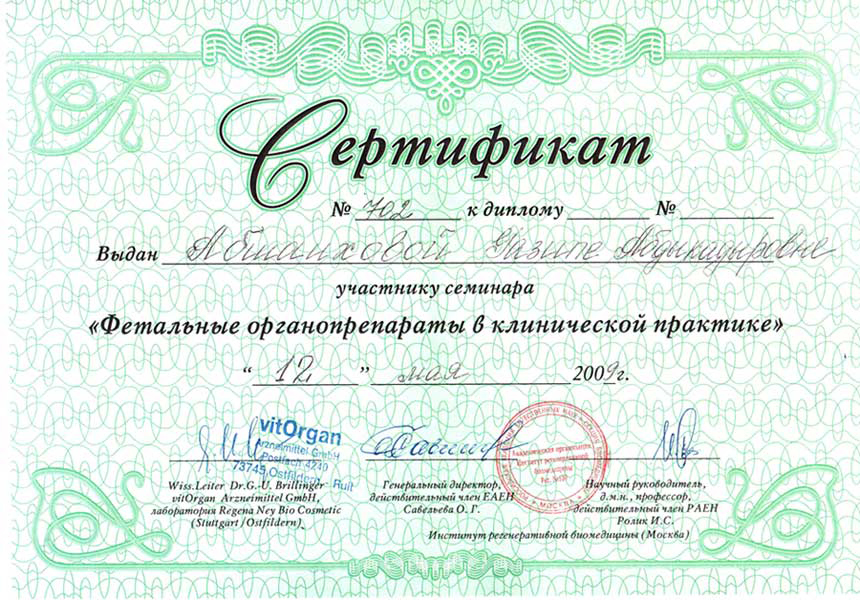 Сертификат
№ 702 к диплому ______ № ______
Выдан Абшаиховой Разипе Абдыкадыровне
участнику семинара
«Фетальные органопрепараты в клинической практике»
“ 12 ” мая 2009г.
vitOrgan
Arzneimittel GmbH
Postfach 4240
73745 Ostfildern - Ruit
Wiss.Leiter Dr.G.-U. Brillinger
vitOrgan Arzneimittel GmbH,
лаборатория Regena Ney Bio Cosmetic
(Stuttgart /Ostfildern)
Генеральный директор,
действительный член ЕАЕН
Савельева О. Г.
Научный руководитель,
д.м.н., профессор,
действительный член РАЕН
Ролик И.С.
Институт регенеративной биомедицины (Москва)